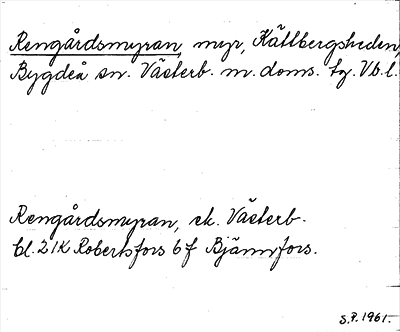 Rengårdsmyran, myr, Källbergsheden,
Bygdeå sn. Västerb. m. doms. tg. Vb. l.
Rengårdsmyran, ek. Västerb.
bl. 21K Robertsfors 6 f Bjännfors.
S.P. 1961.